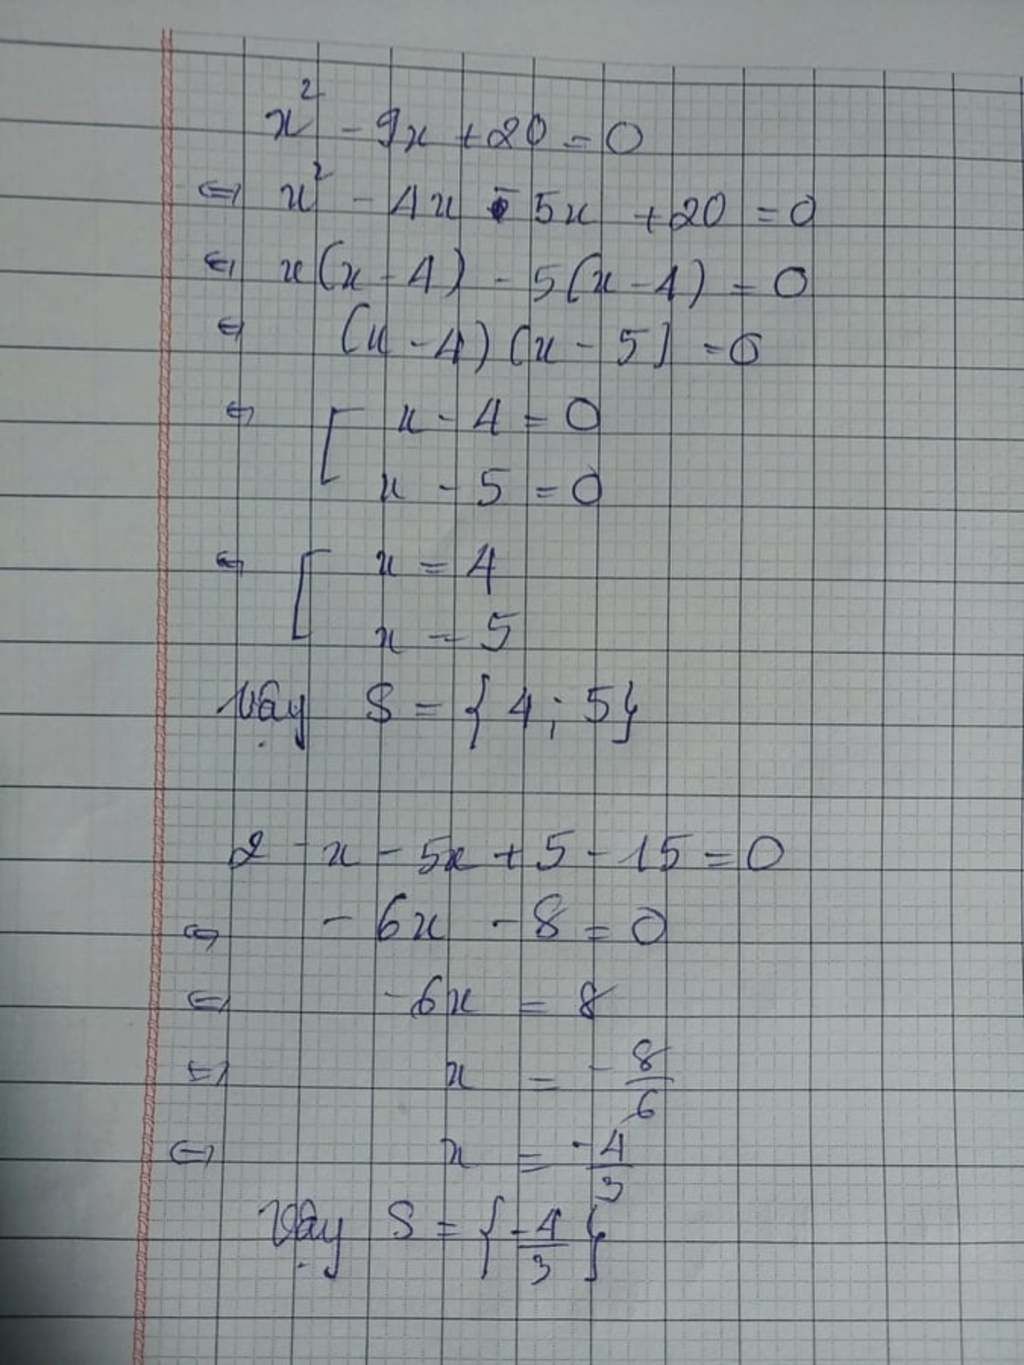 x² - 9x + 20 = 0
⇔ x² - 4x - 5x + 20 = 0
⇔ x(x - 4) - 5(x - 4) = 0
⇔ (x - 4)(x - 5) = 0
⇔ [ x - 4 = 0
x - 5 = 0
⇔ [ x = 4
x = 5
Vậy S = {4; 5}
2 - x - 5x + 5 - 15 = 0
⇔ - 6x - 8 = 0
⇔ -6x = 8
⇔ x = -8/6
⇔ x = -4/3
Vậy S = {-4/3}